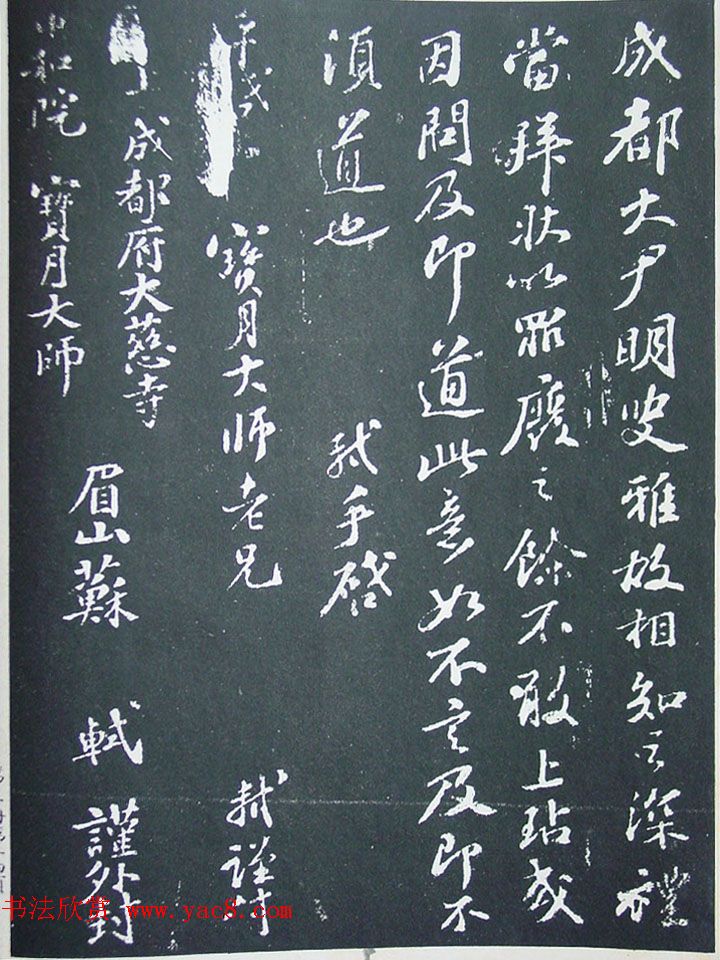 成都大尹明叟雅故相知之深禮
當拜狀以罪廢之餘不敢上玷或
因問及即道此意如不言及即不
須道也 軾手啓
寶月大師老兄 軾謹封
成都府大慈寺
中和院 寶月大師
眉山蘇 軾 謹外封
书法欣赏 www.yac8.com